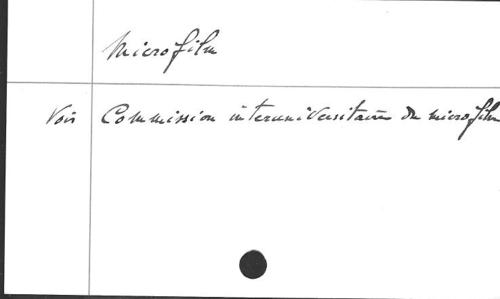 Microfilm
Voir Commission interuniversitaire du microfilm